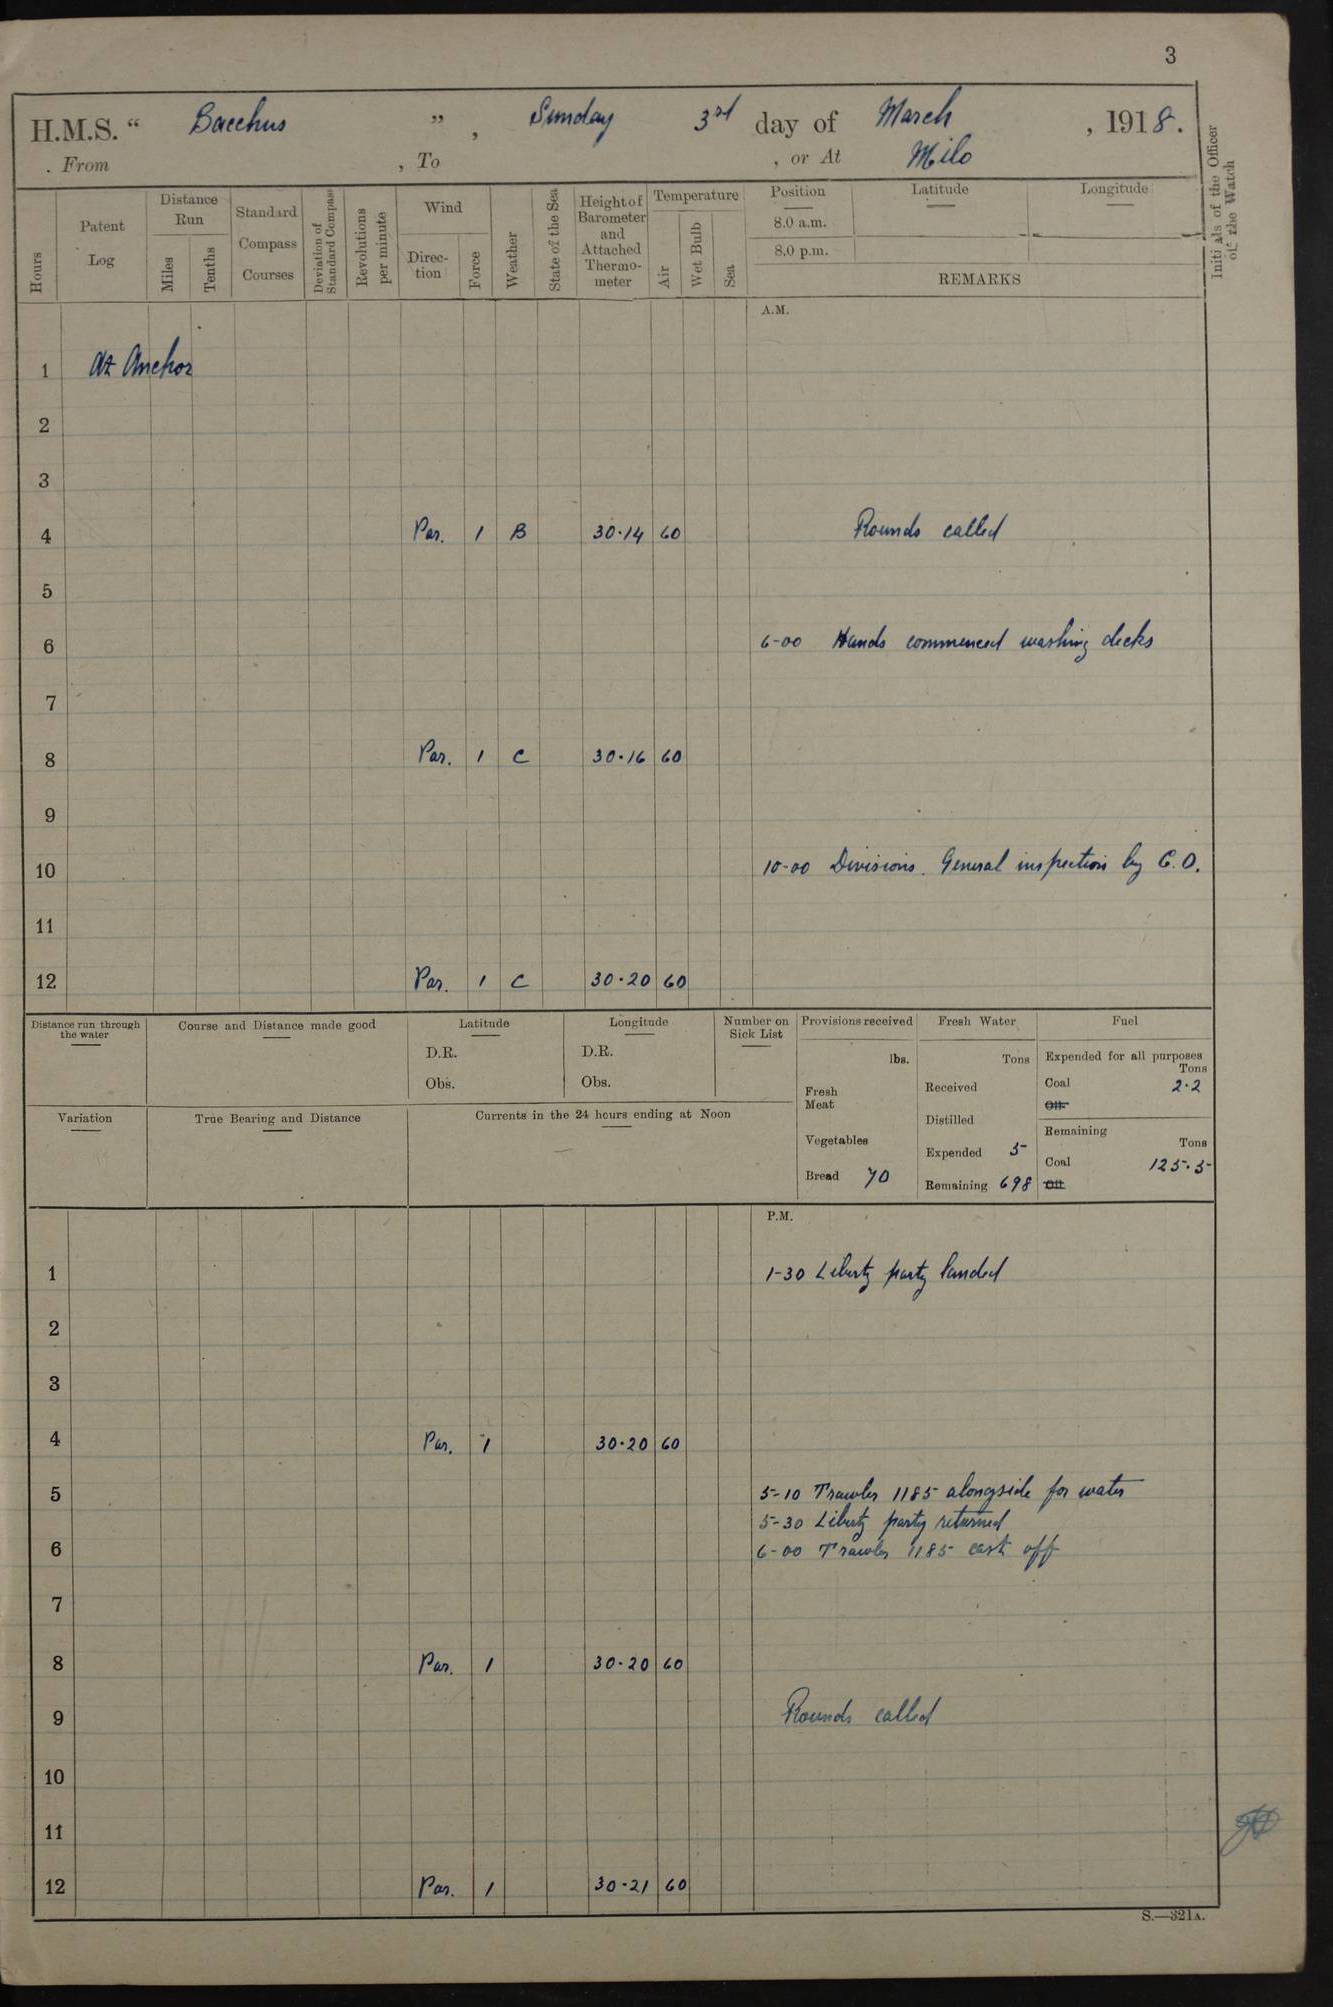 3
H.M.S. “ Bacchus ” , Sunday 3rd day of March , 1918.
. From , To , or At Milo
Hours
Patent Log
Distance Run
Miles
Tenths
Standard Compass Courses
Deviation of Standard Compass
Revolutions per minute
Wind
Direc-tion
Force
Weather
State of the Sea
Height of Barometer and Attached Thermo-meter
Temperature
Air
Wet Bulb
Sea
Position
Latitude
Longitude
8.0 a.m.
8.0 p.m.
REMARKS
Initials of the Officer of the Watch
A.M.
1 At Anchor
2
3
4 Par. 1 B 30·14 60 Rounds called
5
6 6-00 Hands commenced washing decks
7
8 Par. 1 C 30·16 60
9
10 10-00 Divisions. General inspection by C.O.
11
12 Par. 1 C 30·20 60
Distance run through the water
Course and Distance made good
Latitude
D.R.
Obs.
Longitude
D.R.
Obs.
Number on Sick List
Provisions received
lbs.
Fresh Meat
Vegetables
Bread 70
Fresh Water
Tons
Received
Distilled
Expended 5
Remaining 698
Fuel
Expended for all purposes
Tons
Coal 2·2
Oil
Remaining
Tons
Coal 125·5
Oil
Variation
True Bearing and Distance
Currents in the 24 hours ending at Noon
P.M.
1 1-30 Liberty party landed
2
3
4 Par. 1 30·20 60
5 5-10 Trawler 1185 alongside for water
5-30 Liberty party returned
6 6-00 Trawler 1185 cast off
7
8 Par. 1 30·20 60
9 Rounds called
10
11
12 Par. 1 30·21 60
S.—321A.